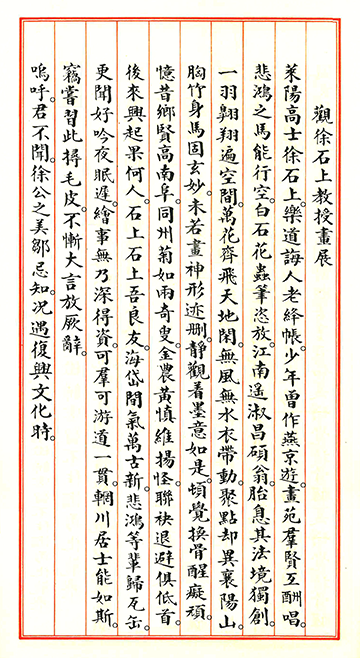 觀徐石上教授畫展
萊陽高士徐石上。樂道誨人老絳帳。少年曾作燕京遊。畫苑羣賢互酬唱。
悲鴻之馬能行空。白石花蟲筆恣放。江南遥淑昌碩翁。胎息其法境獨創。
一羽翺翔遍空間。萬花齊飛天地閑。無風無水衣帶動。聚點却異襄陽山。
胸竹身馬固玄妙。未若畫神形迹删。靜觀着墨意如是。頓覺換骨醒癡頑。
憶昔鄉賢高南阜。同州菊如兩奇叟。金農黃慎維揚怪。聯袂退避俱低首。
後來興起果何人。石上石上吾良友。海岱間氣萬古新。悲鴻等輩歸瓦缶。
更聞好吟夜眠遲。繪事無乃深得資。可羣可游道一貫。輞川居士能如斯。
竊嘗習此撏毛皮。不慚大言放厥辭。
嗚呼。君不聞。徐公之美鄒忌知。況遇復興文化時。